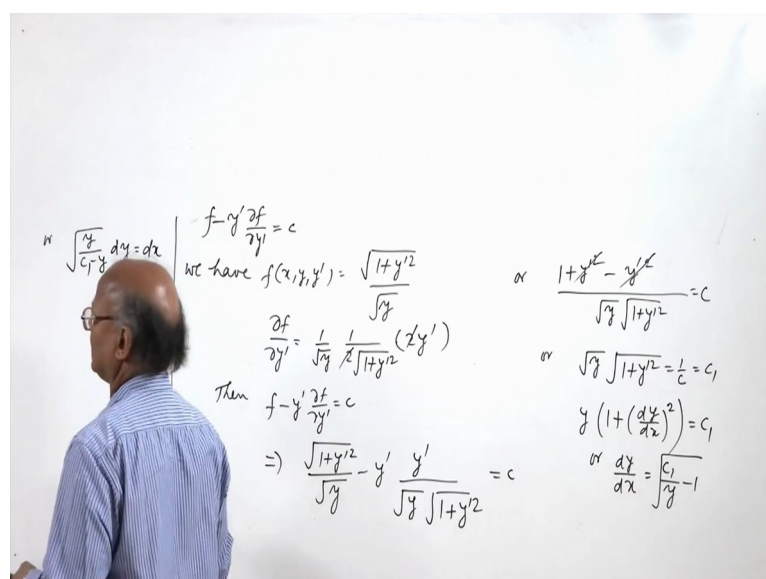 f-y'∂f/∂y'=c
we have f(x,y,y')=√(1+y'²)/√y
∂f/∂y'=1/√y 1/(2√(1+y'²))(2y')
Then f-y'∂f/∂y'=c
=> √(1+y'²)/√y - y' y'/(√y√(1+y'²)) = c
or (1+y'²-y'²)/(√y√(1+y'²))=c
or √y√(1+y'²)=1/c=c₁
y(1+(dy/dx)²)=c₁
or dy/dx=√(c₁/y-1)
or √(y/(c₁-y)) dy=dx